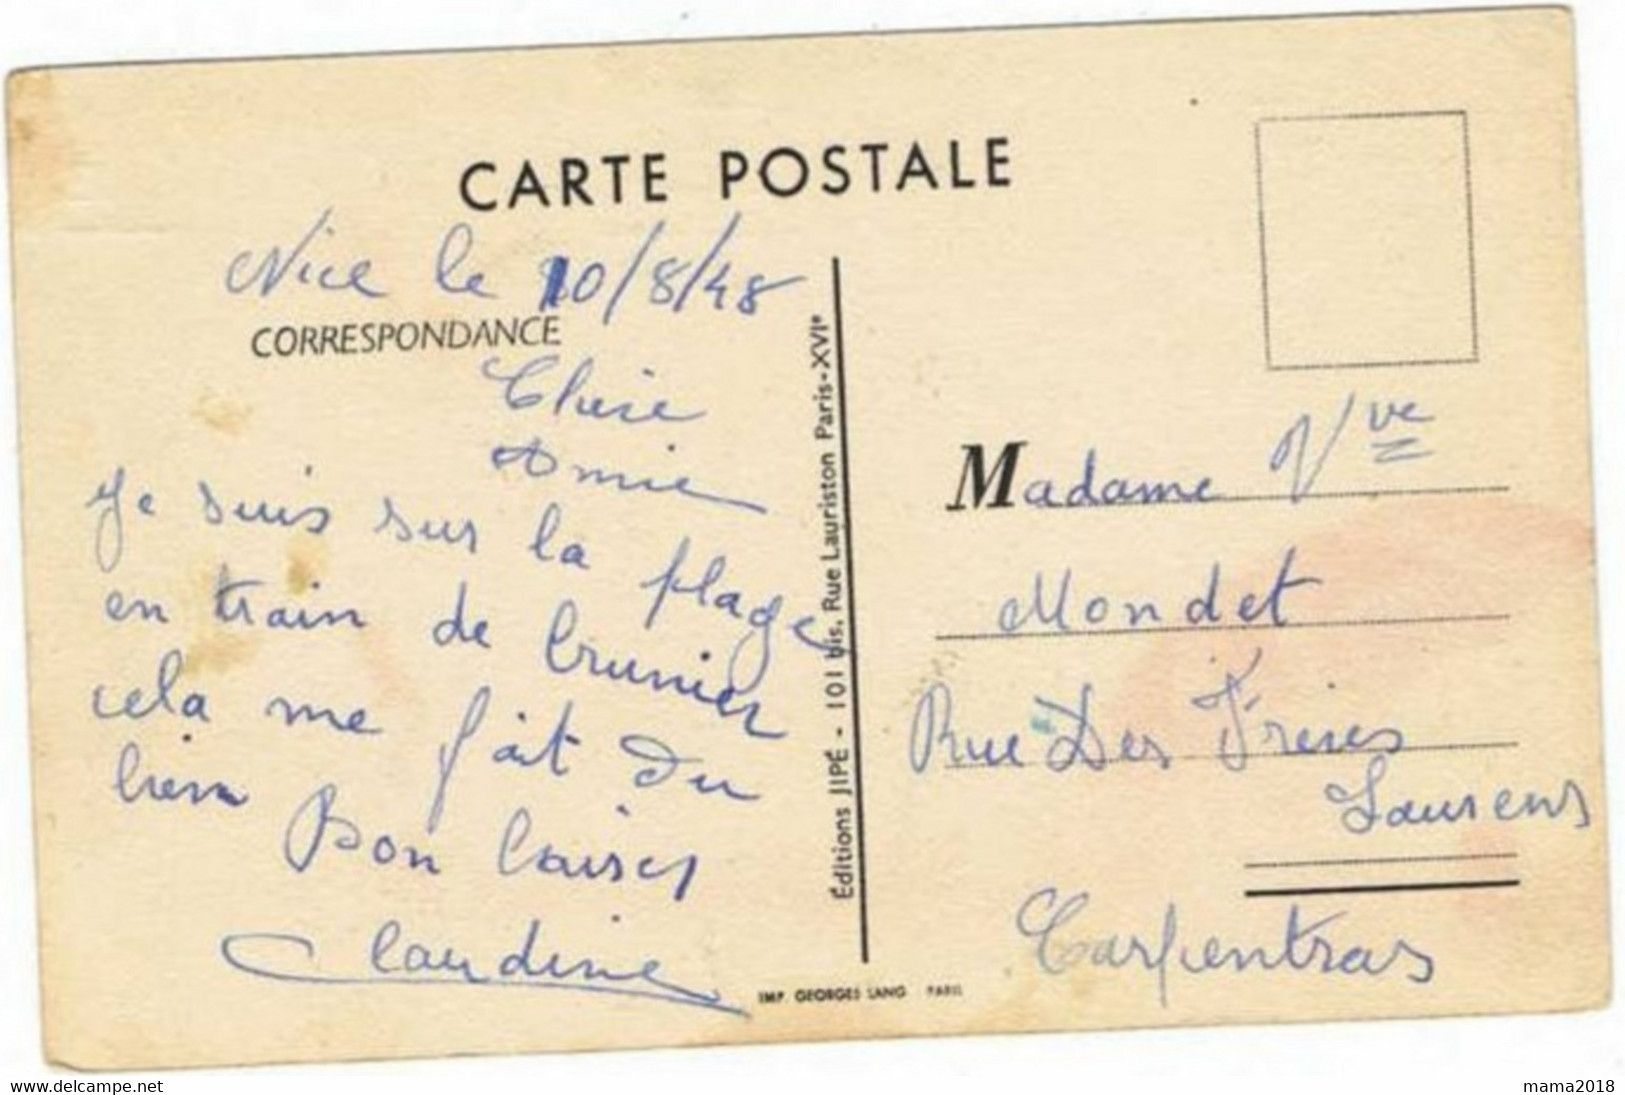 CARTE POSTALE
Nice le 10/8/48
CORRESPONDANCE
Chère
Amie
Je suis sur la plage
en train de brunier
cela me fait du
bien
Bon baiser
Claudine
Éditions JIPÉ - 101 bis, Rue Lauriston Paris-XVIe
IMP. GEORGES LANG PARIS
Madame Vve
Mondet
Rue Des Frères
Laurens
Carpentras
www.delcampe.net
mama2018